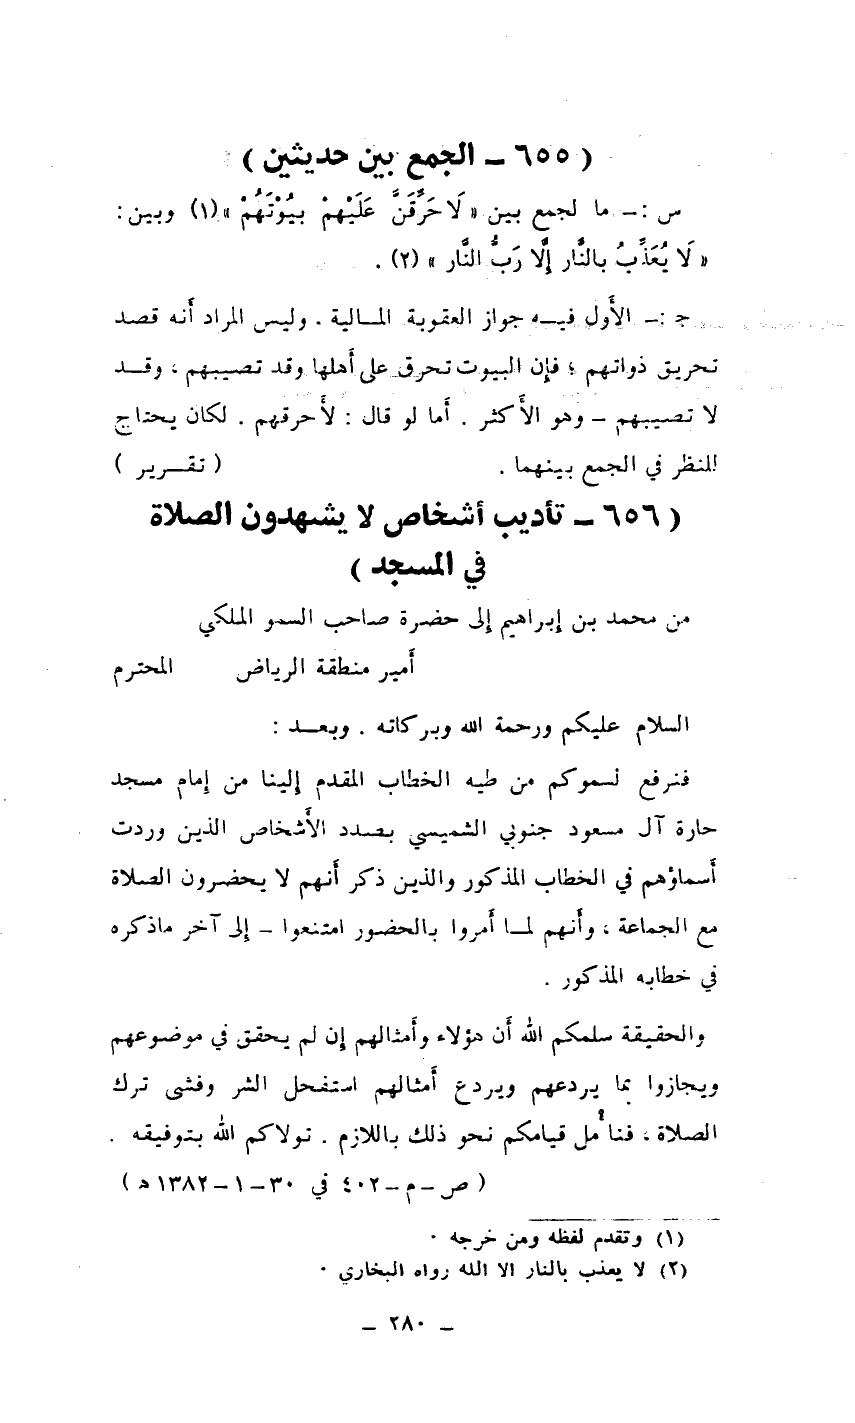 ( ٦٥٥ ـ الجمع بين حديثين )
س :ـ ما لجمع بين « لَاحَرِّقَنَّ عَلَيْهِمْ بيُوْتَهُمْ »(١) وبين :
« لَا يُعَذِّبُ بالنَّار إلَّا رَبُّ النَّار » (٢) .
ج :ـ الأَول فيـه جواز العقوبة المـالية . وليس المراد أَنه قصد
تحريق ذواتهم ؛ فإن البيوت تحرق على أَهلها وقد تصيبهم ، وقـد
لا تصيبهم ـ وهو الأَكثر . أَما لو قال : لأَحرقهم . لكان يحتاج
للنظر في الجمع بينهما . ( تقـرير )
( ٦٥٦ ـ تأديب أشخاص لا يشهدون الصلاة
في المسجد )
من محمد بن إبراهيم إلى حضرة صاحب السمو الملكي
أَمير منطقة الرياض المحترم
السلام عليكم ورحمة الله وبركاته . وبعـد :
فنرفع لسموكم من طيه الخطاب المقدم إلينا من إمام مسجد
حارة آل مسعود جنوبي الشميسي بصدد الأَشخاص الذين وردت
أَسماؤهم في الخطاب المذكور والذين ذكر أَنهم لا يحضرون الصلاة
مع الجماعة ، وأَنهم لمـا أَمروا بالحضور امتنعوا ـ إلى آخر ماذكره
في خطابه المذكور .
والحقيقة سلمكم الله أَن هؤلاء وأَمثالهم إن لم يحقق في موضوعهم
ويجازوا بما يردعهم ويردع أَمثالهم استفحل الشر وفشى ترك
الصلاة ، فنأمل قيامكم نحو ذلك باللازم . تولاكم الله بتوفيقه .
( ص ـ م ـ ٤٠٢ في ٣٠ ـ ١ ـ ١٣٨٢ ه )
(١) وتقدم لفظه ومن خرجه ٠
(٢) لا يعذب بالنار الا الله رواه البخاري ٠
ـ ٢٨٠ ـ